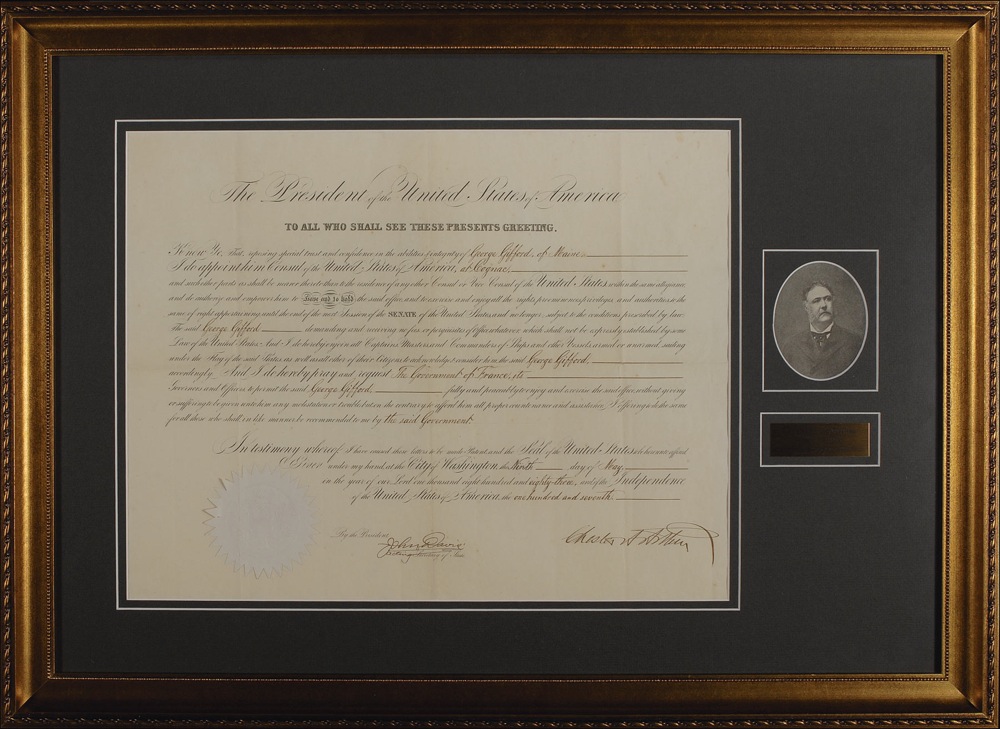 The President of the United States of America
TO ALL WHO SHALL SEE THESE PRESENTS GREETING.
Know Ye, That reposing special trust and confidence in the abilities & integrity of George Gifford, of Maine,
I do appoint him Consul of the United States of America, at Cognac,
and such other parts as shall be nearer thereto than to the residence of any other Consul or Vice Consul of the United States within the same allegiance
and do authorize and empower him to have and to hold the said office, and to exercise and enjoy all the rights, preeminences, privileges, and authorities, to the
same of right appertaining until the end of the next Session of the SENATE of the United States and no longer, subject to the conditions prescribed by law:
The said George Gifford demanding and receiving no fees or perquisites of Office whatever, which shall not be expressly established by some
Law of the United States. And I do hereby enjoin all Captains Masters and Commanders of Ships and other Vessels, armed or unarmed sailing
under the Flag of the said States, as well as all other of their Citizens to acknowledge & consider him the said George Gifford,
accordingly. And I do hereby pray and request The Government of France, its
Governors and Officers to permit the said George Gifford fully and peaceably to enjoy and exercise the said office without giving
or suffering to be given unto him any molestation or trouble, but on the contrary to afford him all proper countenance and assistance, I offering to do the same
for all those who shall, in like manner, be recommended to me by the said Government.
In testimony whereof I have caused these letters to be made Patent, and the Seal of the United States to be hereunto affixed.
Given under my hand at the City of Washington the Ninth day of May,
in the year of our Lord one thousand eight hundred and eighty-three, and of the Independence
of the United States of America, the one hundred and seventh.
By the President,
John Davis Chester A. Arthur
Acting Secretary of State